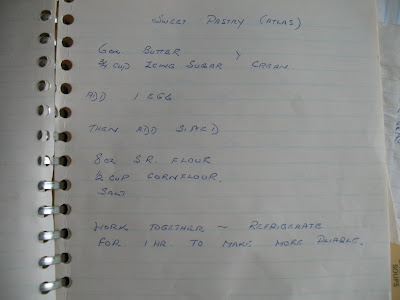 SWEET PASTRY (ATLAS)
6oz BUTTER }
3/4 CUP ICING SUGAR CREAM
ADD 1 EGG
THEN ADD SIFTED
8oz S.R. FLOUR
1/2 CUP CORNFLOUR.
SALT
WORK TOGETHER ~ REFRIGERATE
FOR 1 HR. TO MAKE MORE PLIABLE.